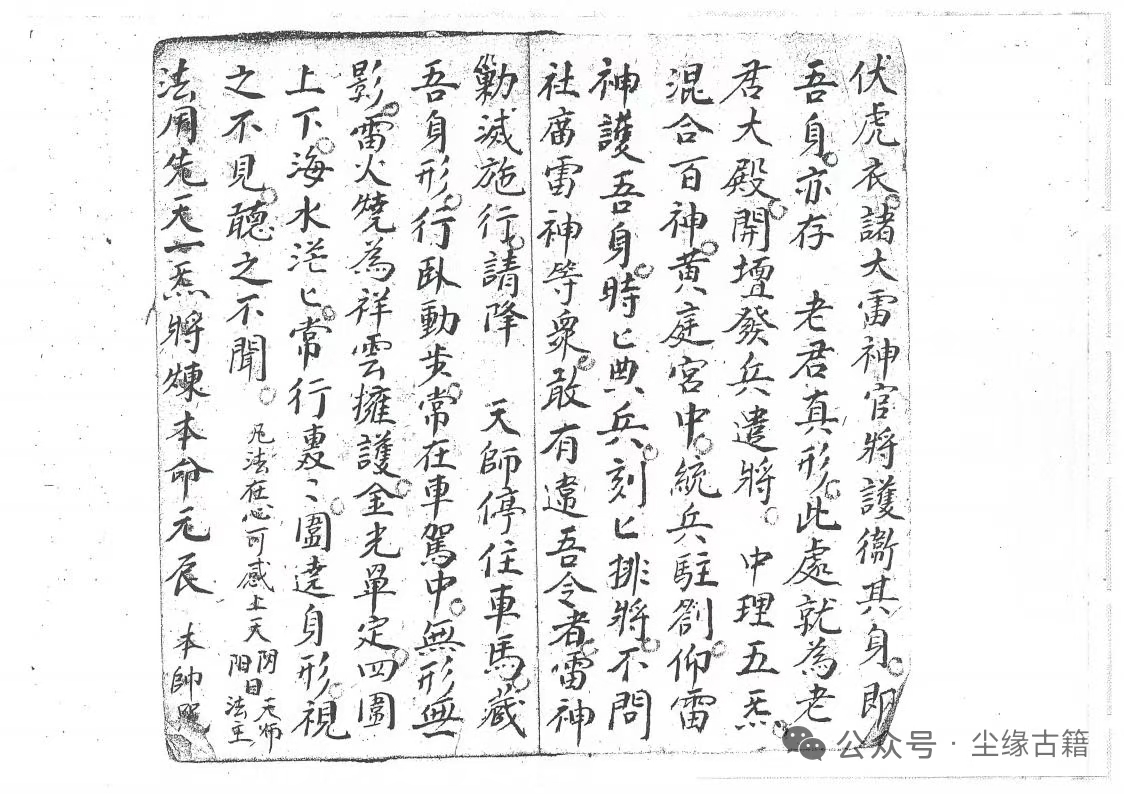 伏虎衣。諸大雷神官將護衞其身。即
吾身。亦存　老君真形。此處就為老
君大殿。開壇發兵遣將。　中理五炁。
混合百神。黄庭宮中。統兵駐劄。仰雷
神護吾身。時匕典兵。刻匕排將。不問
社庙雷神等衆。敢有違吾令者。雷神
勦滅施行。請降　天師停住車馬。藏
吾身形。行臥動步。常在車駕中。無形無
影。雷火燒為祥雲擁護。金光單定。四圍
上下。海水茫匕。常行裹〻。圍遶身形。視
之不見。聽之不聞。
凡法在心可感上天
陰陽日
天师法王
法用先天一炁將煉本命元辰　本帥
公众号 · 尘缘古籍